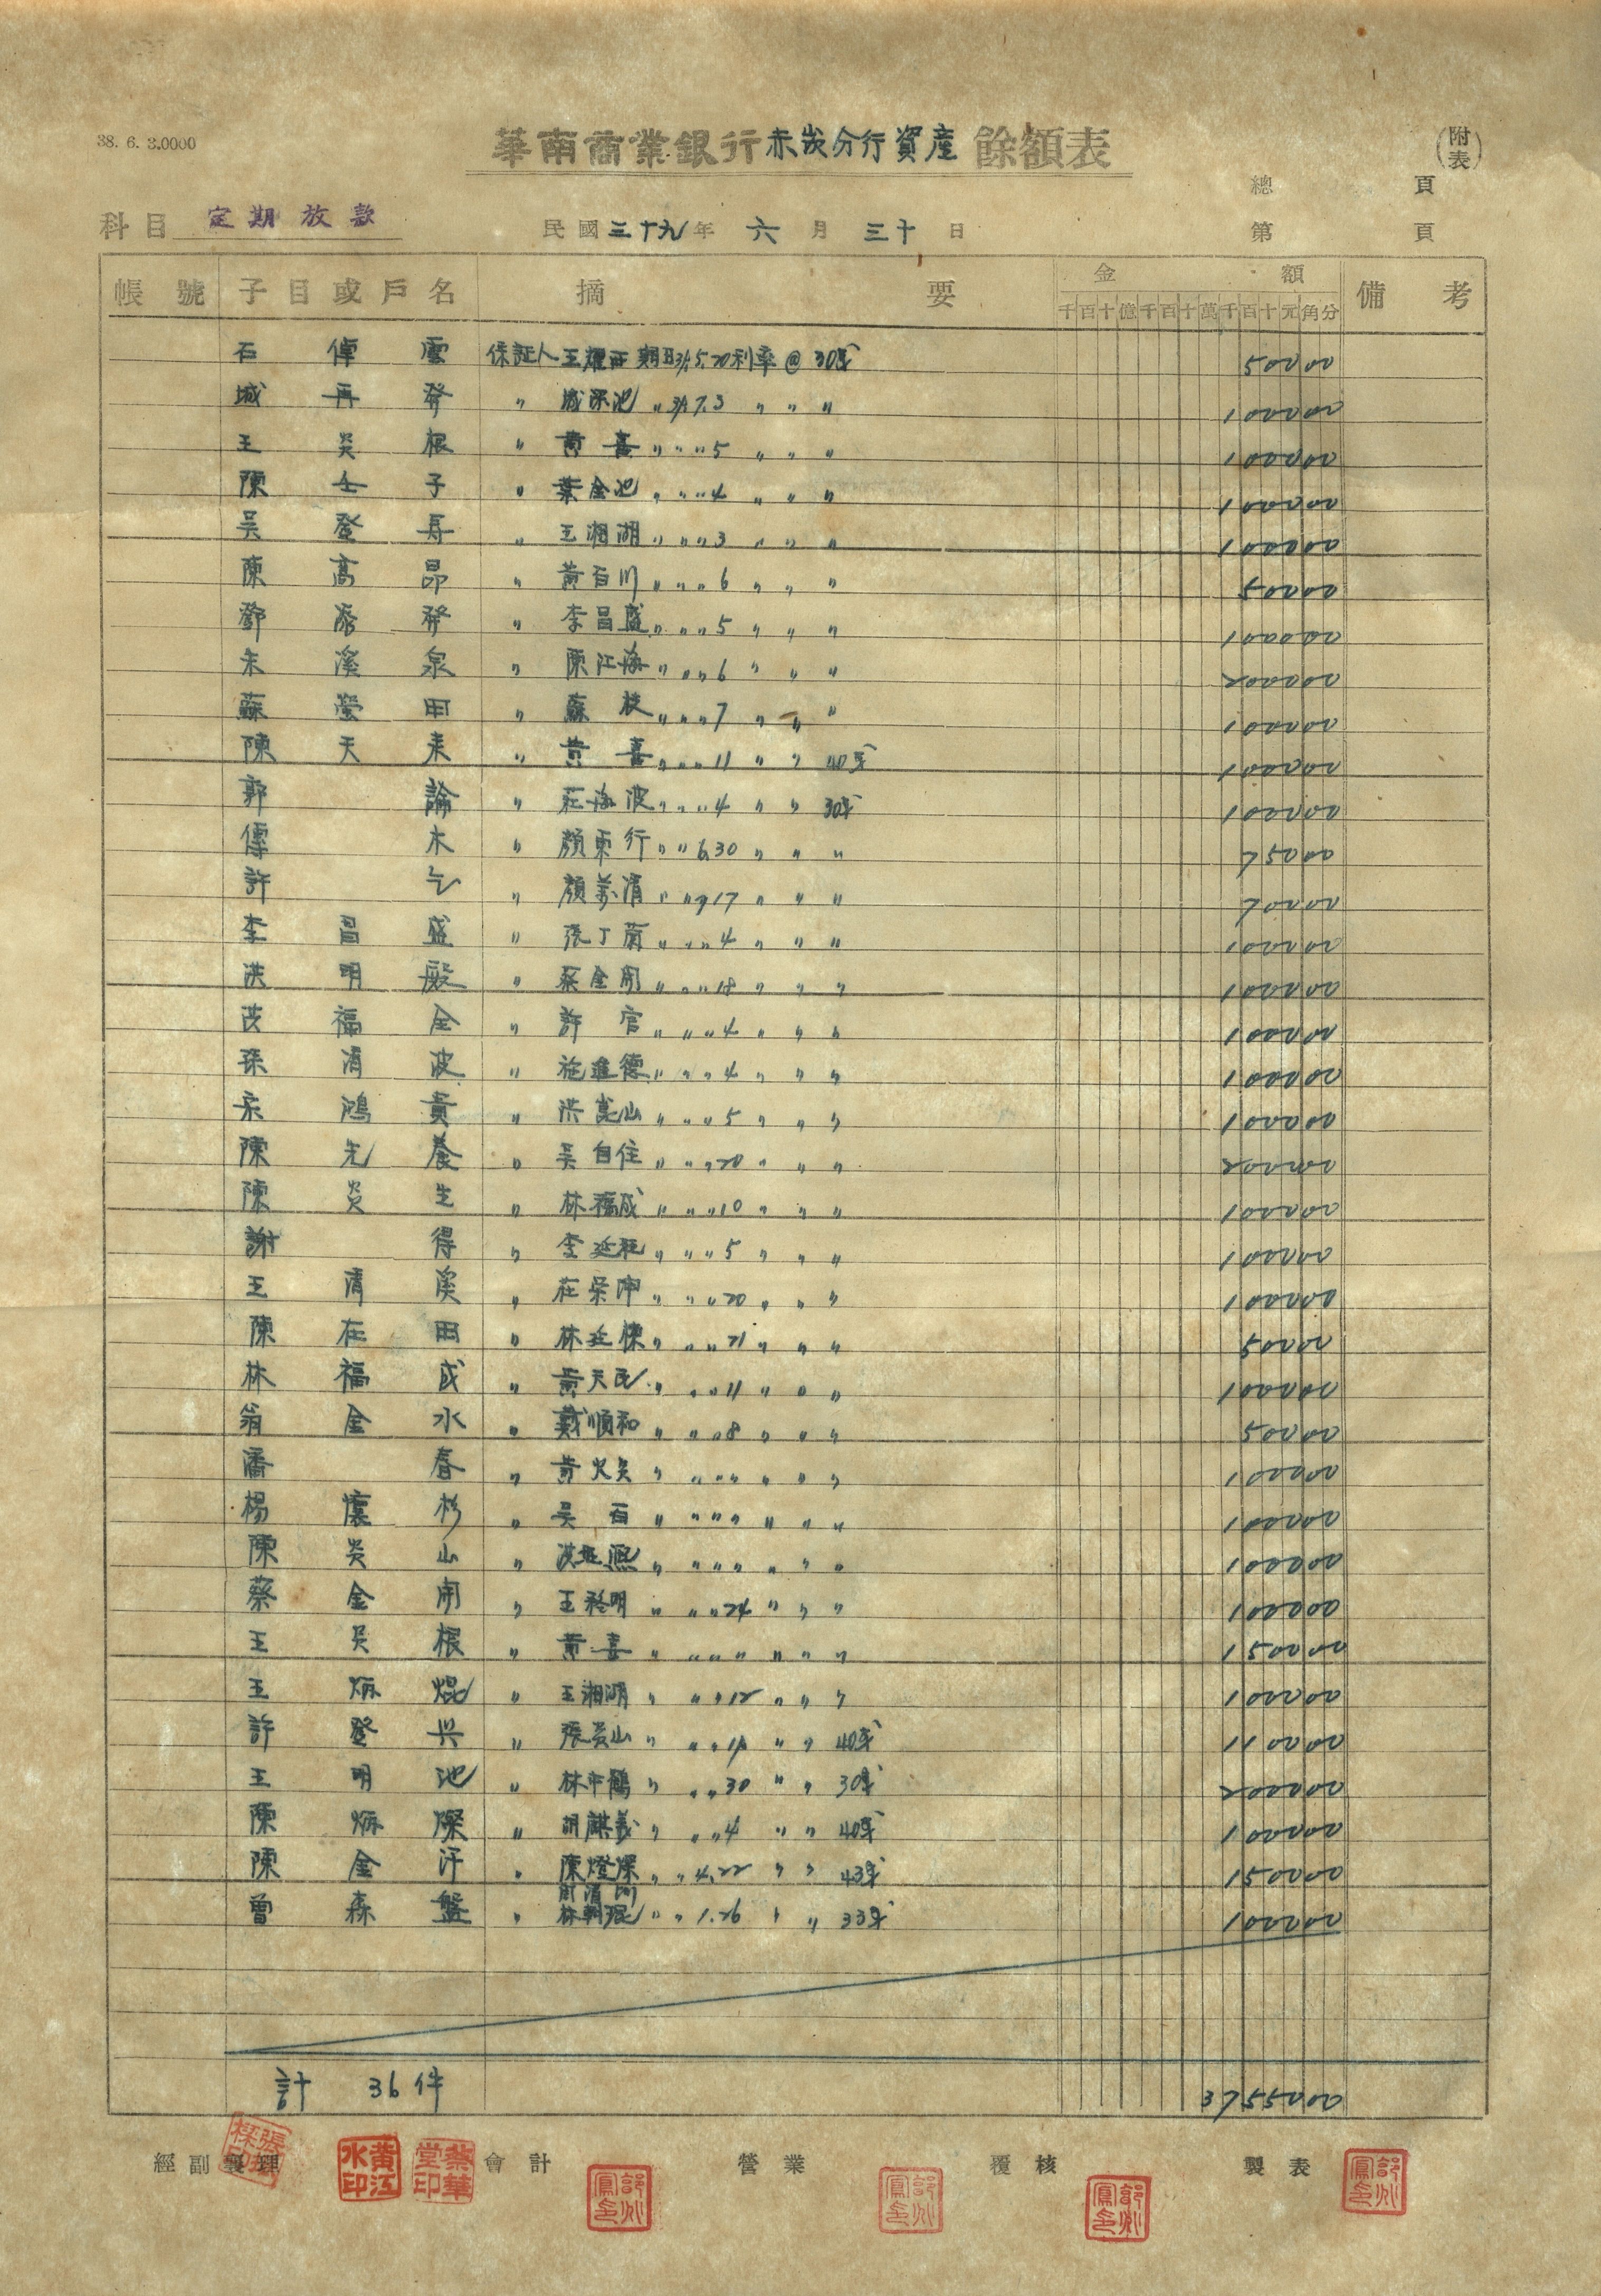 38. 6. 3.0000
華南商業銀行赤崁分行資產餘額表
(附表)
總 頁
科目 定期放款 民國三十九年 六月 三十日 第 頁
帳號 子目或戶名 摘要 金額 備考
千百十億千百十萬千百十元角分
石 雲 保証人 王耀 期日 5.20 利率@ 30 50000
城再發 〃 城深池 〃 7.3 〃 〃 〃 100000
王炎根 〃 黃喜 〃 〃 〃 5 〃 〃 〃 100000
陳壬子 〃 葉金池 〃 〃 〃 4 〃 〃 〃 100000
吳登 〃 王湘湖 〃 〃 〃 3 〃 〃 〃 100000
陳高昂 〃 黃百川 〃 〃 〃 6 〃 〃 〃 50000
鄧添發 〃 李昌盛 〃 〃 〃 5 〃 〃 〃 100000
朱溪泉 〃 陳江海 〃 〃 〃 6 〃 〃 〃 200000
蘇瑩田 〃 蘇枝 〃 〃 〃 7 〃 〃 〃 100000
陳天來 〃 黃喜 〃 〃 〃 11 〃 〃 40 100000
郭論 〃 莊海波 〃 〃 〃 4 〃 〃 30 100000
木 〃 顏東行 〃 〃 6.30 〃 〃 〃 75000
許乞 〃 顏萬清 〃 〃 7.17 〃 〃 〃 70000
李昌盛 〃 張丁蘭 〃 〃 〃 4 〃 〃 〃 100000
洪明殿 〃 蔡金開 〃 〃 〃 18 〃 〃 〃 100000
福全 〃 許官 〃 〃 〃 4 〃 〃 〃 100000
孫清波 〃 施進德 〃 〃 〃 4 〃 〃 〃 100000
鴻貴 〃 洪 山 〃 〃 〃 5 〃 〃 〃 100000
陳先養 〃 吳自住 〃 〃 〃 20 〃 〃 〃 200000
陳炎生 〃 林福成 〃 〃 〃 10 〃 〃 〃 100000
謝得 〃 李延 〃 〃 〃 5 〃 〃 〃 100000
王清溪 〃 莊榮 〃 〃 〃 20 〃 〃 〃 100000
陳在田 〃 林廷 〃 〃 〃 21 〃 〃 〃 50000
林福成 〃 黃天民 〃 〃 〃 11 〃 〃 〃 100000
翁金水 〃 戴順和 〃 〃 〃 8 〃 〃 〃 50000
潘春 〃 黃火炎 〃 〃 〃 〃 〃 〃 〃 100000
楊懷杉 〃 吳石 〃 〃 〃 〃 〃 〃 〃 100000
陳炎山 〃 洪 熙 〃 〃 〃 〃 〃 〃 〃 100000
蔡金開 〃 王 明 〃 〃 〃 24 〃 〃 〃 100000
王炎根 〃 黃喜 〃 〃 〃 〃 〃 〃 〃 150000
王炳焜 〃 王湘湖 〃 〃 〃 12 〃 〃 〃 100000
許登興 〃 張炎山 〃 〃 〃 〃 〃 40 110000
王明池 〃 林中鶴 〃 〃 〃 30 〃 〃 30 200000
陳炳燦 〃 胡麒義 〃 〃 〃 4 〃 〃 40 100000
陳金汗 〃 陳燈 〃 〃 4.22 〃 〃 43 150000
曾森盤 〃 林朝琨 〃 〃 1.26 〃 〃 33 100000
計 36件 3755000
經副襄理 會計 營業 覆核 製表
黃江水印
蔡華堂印